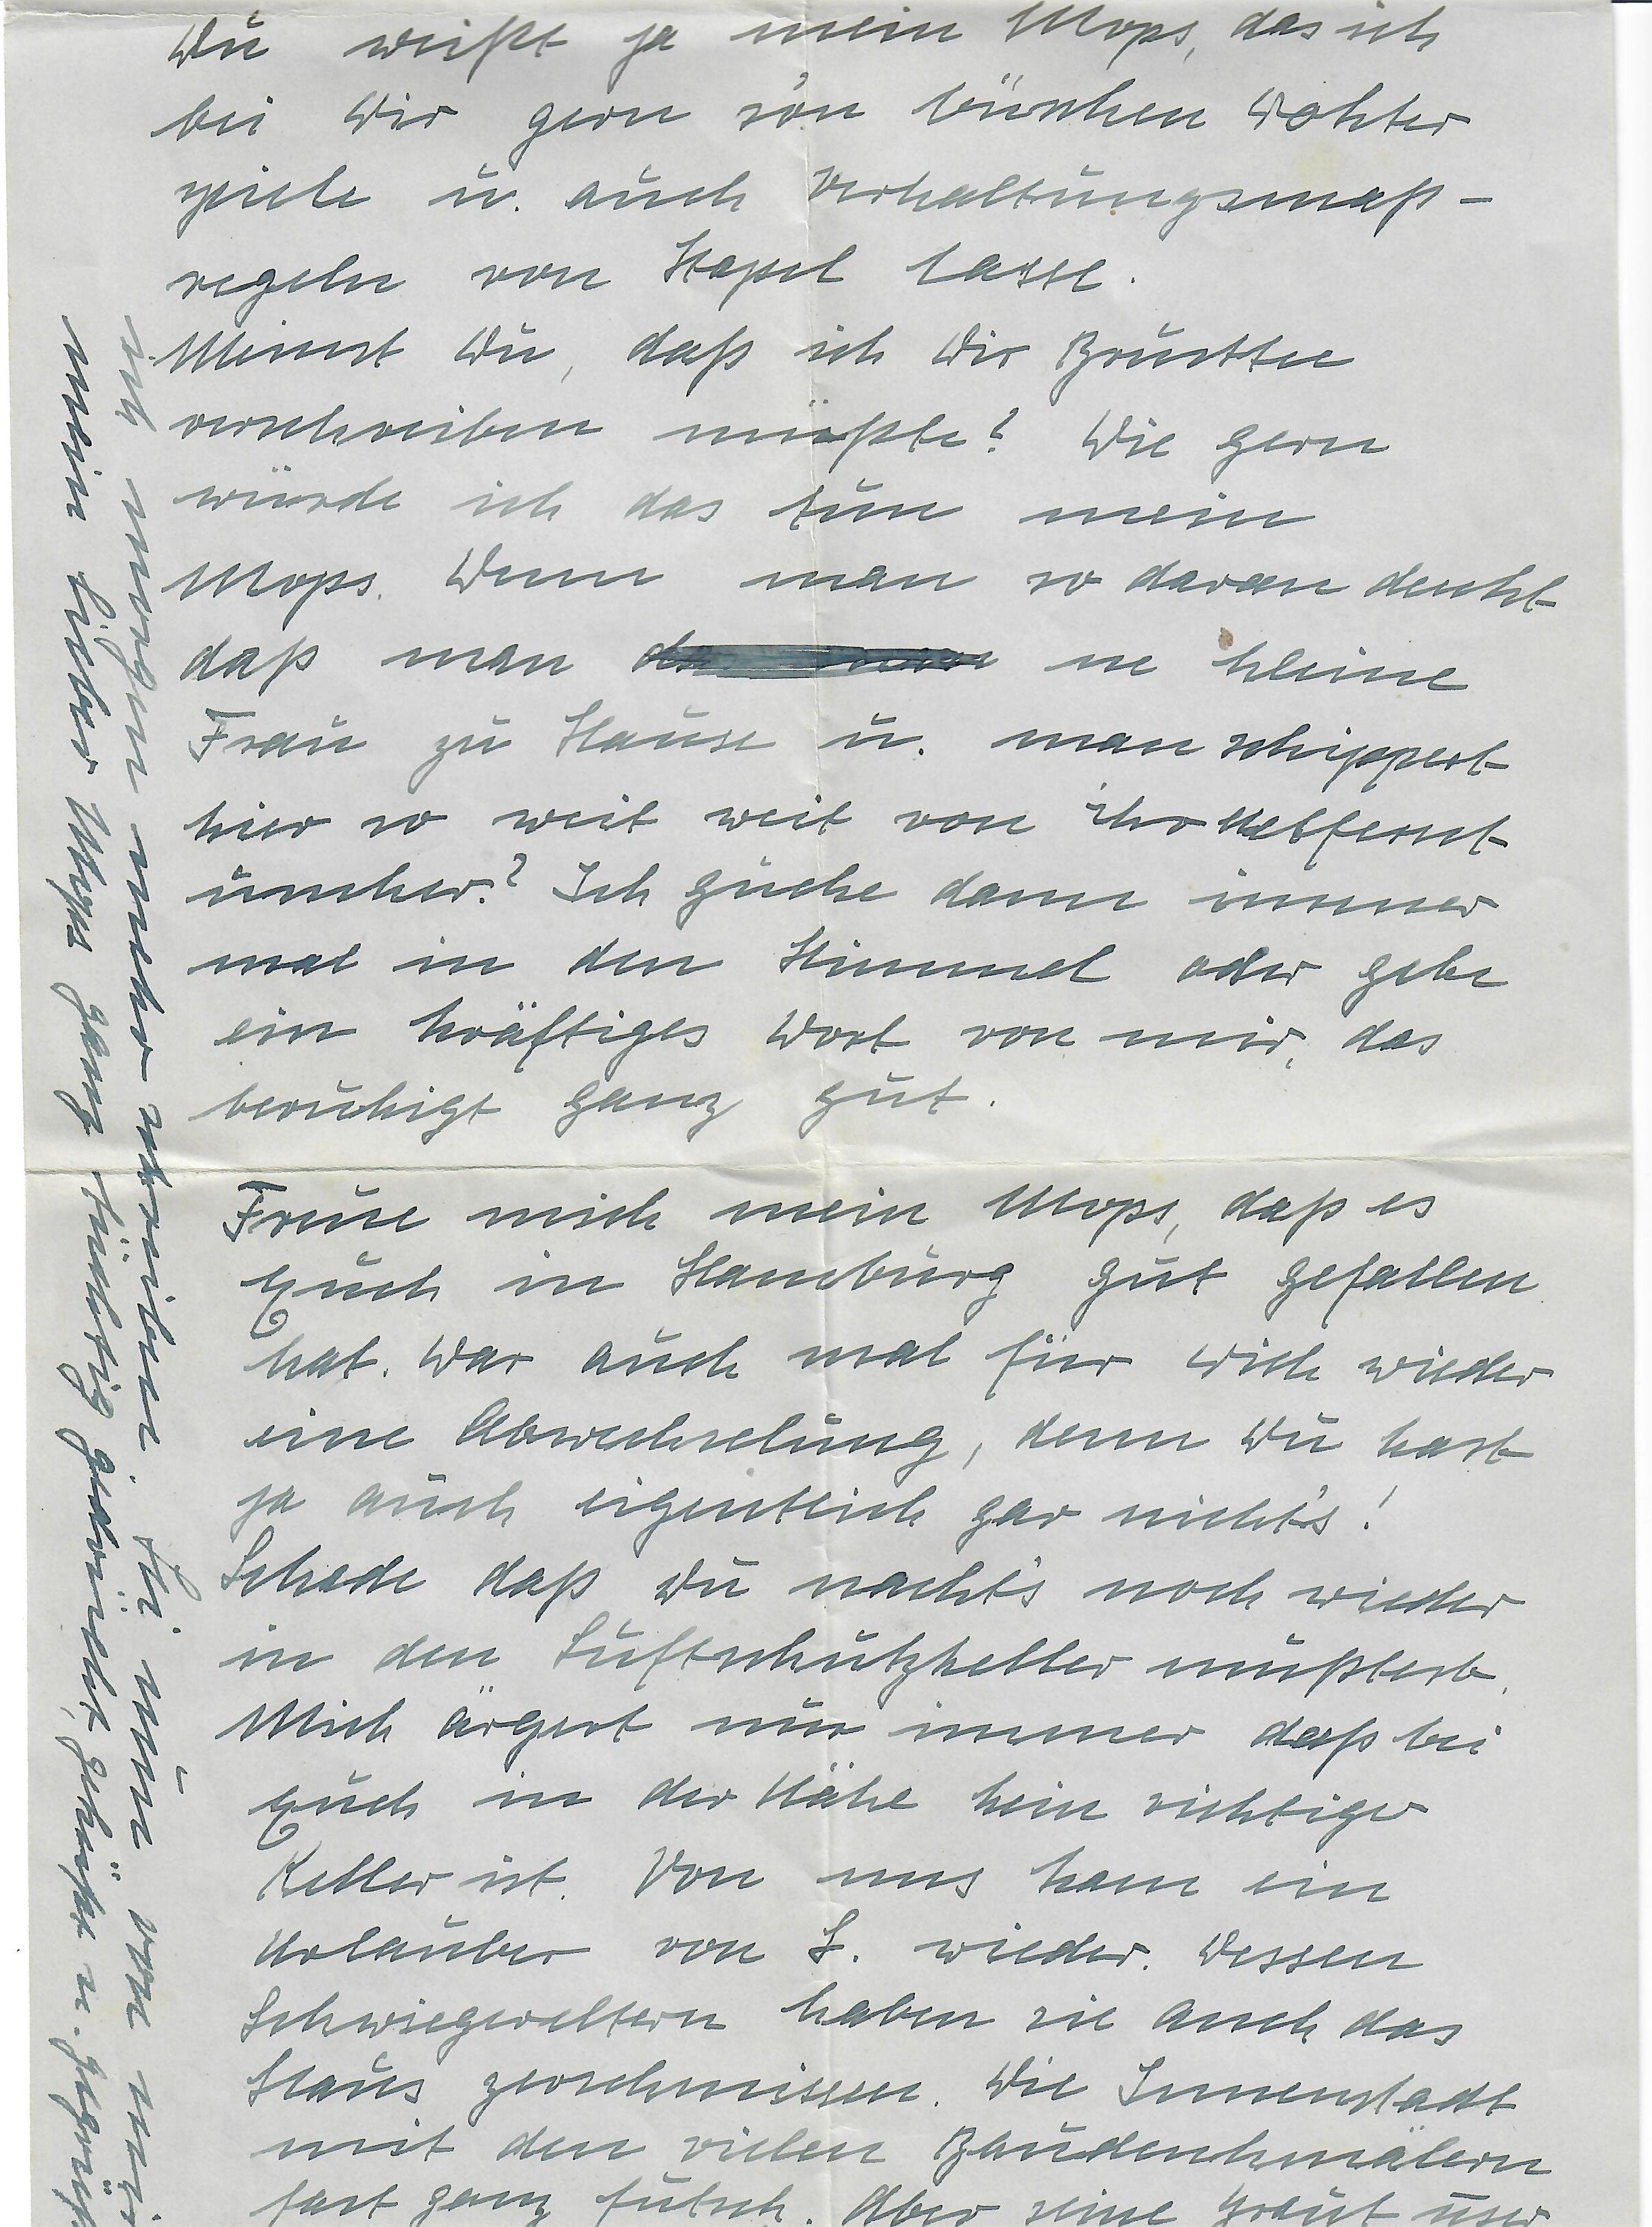 Du weißt ja mein Mops, das ich
bei Dir gern so'n büschen Dokter
spiele u. auch Verhaltungsmaß-
regeln von Stapel lasse.
Meinst Du, daß ich Dir Brusttee
verschreiben müßte? Wie gern
würde ich das tun mein
Mops. Wenn man so daran denkt
daß man ne kleine
Frau zu Hause u. man schippert
hier so weit weit von ihr entfernt
umher? Ich gucke dann immer
mal in den Himmel oder gebe
ein kräftiges Wort von mir, das
beruhigt ganz gut.
Freue mich mein Mops, daß es
Euch in Hamburg gut gefallen
hat. War auch mal für Dich wieder
eine Abwechselung, denn Du hast
ja auch eigentlich gar nicht's!
Schade daß Du nacht's noch wieder
in den Luftschutzkeller mußtest.
Mich ärgert nur immer daß bei
Euch in der Nähe kein richtiger
Keller ist. Von uns kam ein
Urlauber von L. wieder. Dessen
Schwiegereltern haben sie auch das
Haus zerschmissen. Die Innenstadt
mit den vielen Baudenkmälern
fast ganz futsch. Aber seine Braut
morgen mehr schreiben. Sei nun von mir
mein lieber Mops ganz tüchtig gedrückt, geküßt u. gegrüßt